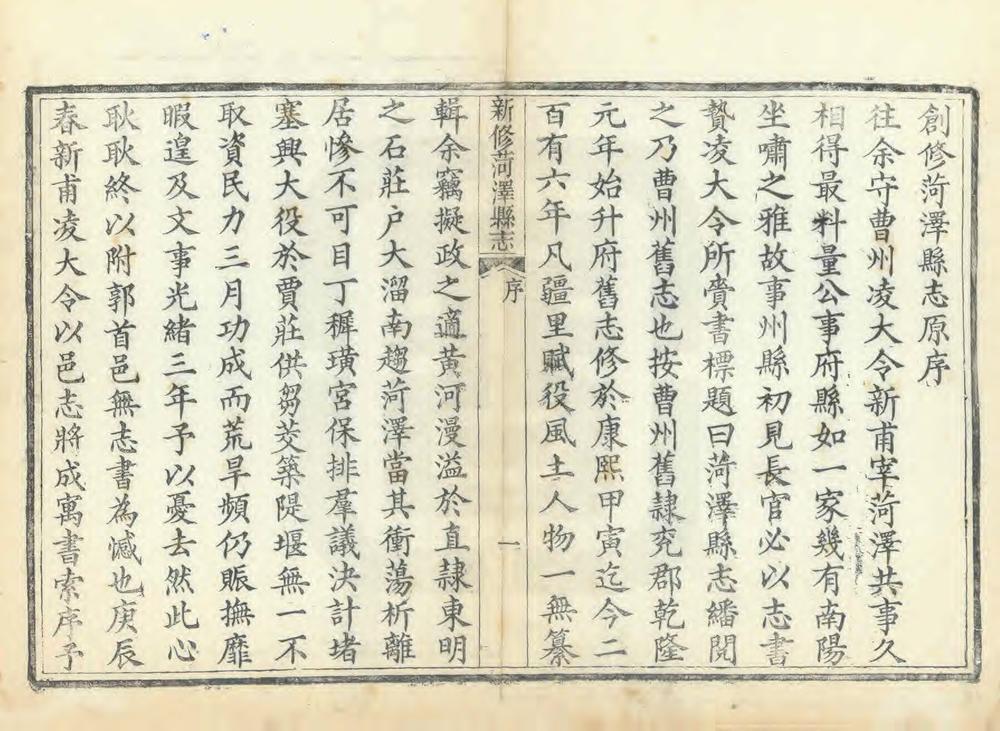 創修菏澤縣志原序
往余守曹州凌大令新甫宰菏澤共事久
相得最料量公事府縣如一家幾有南陽
坐嘯之雅故事州縣初見長官必以志書
贄凌大令所賫書標題曰菏澤縣志繙閱
之乃曹州舊志也按曹州舊隸兖郡乾隆
元年始升府舊志修於康熙甲寅迄今二
百有六年凡疆里賦役風土人物一無纂
新修菏澤縣志
序
一
輯余竊擬政之適黃河漫溢於直隸東明
之石莊戶大溜南趨菏澤當其衝蕩析離
居慘不可目丁穉璜宮保排羣議決計堵
塞興大役於賈莊供芻茭築隄堰無一不
取資民力三月功成而荒旱頻仍賑撫靡
暇遑及文事光緒三年予以憂去然此心
耿耿終以附郭首邑無志書為憾也庚辰
春新甫凌大令以邑志將成寓書索序予